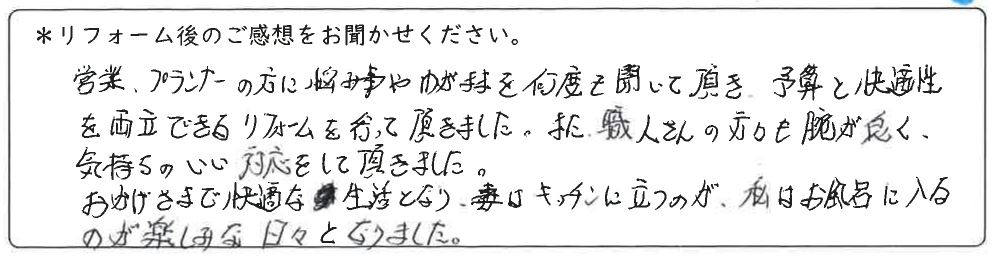 *リフォーム後のご感想をお聞かせください。
営業、プランナーの方に悩み事やわがままを何度も聞いて頂き、予算と快適性
を両立できるリフォームを行って頂きました。また、職人さんの方々も腕が良く、
気持ちのいい対応をして頂きました。
おかげさまで快適な生活となり、妻はキッチンに立つのが、私はお風呂に入る
のが楽しみな日々となりました。